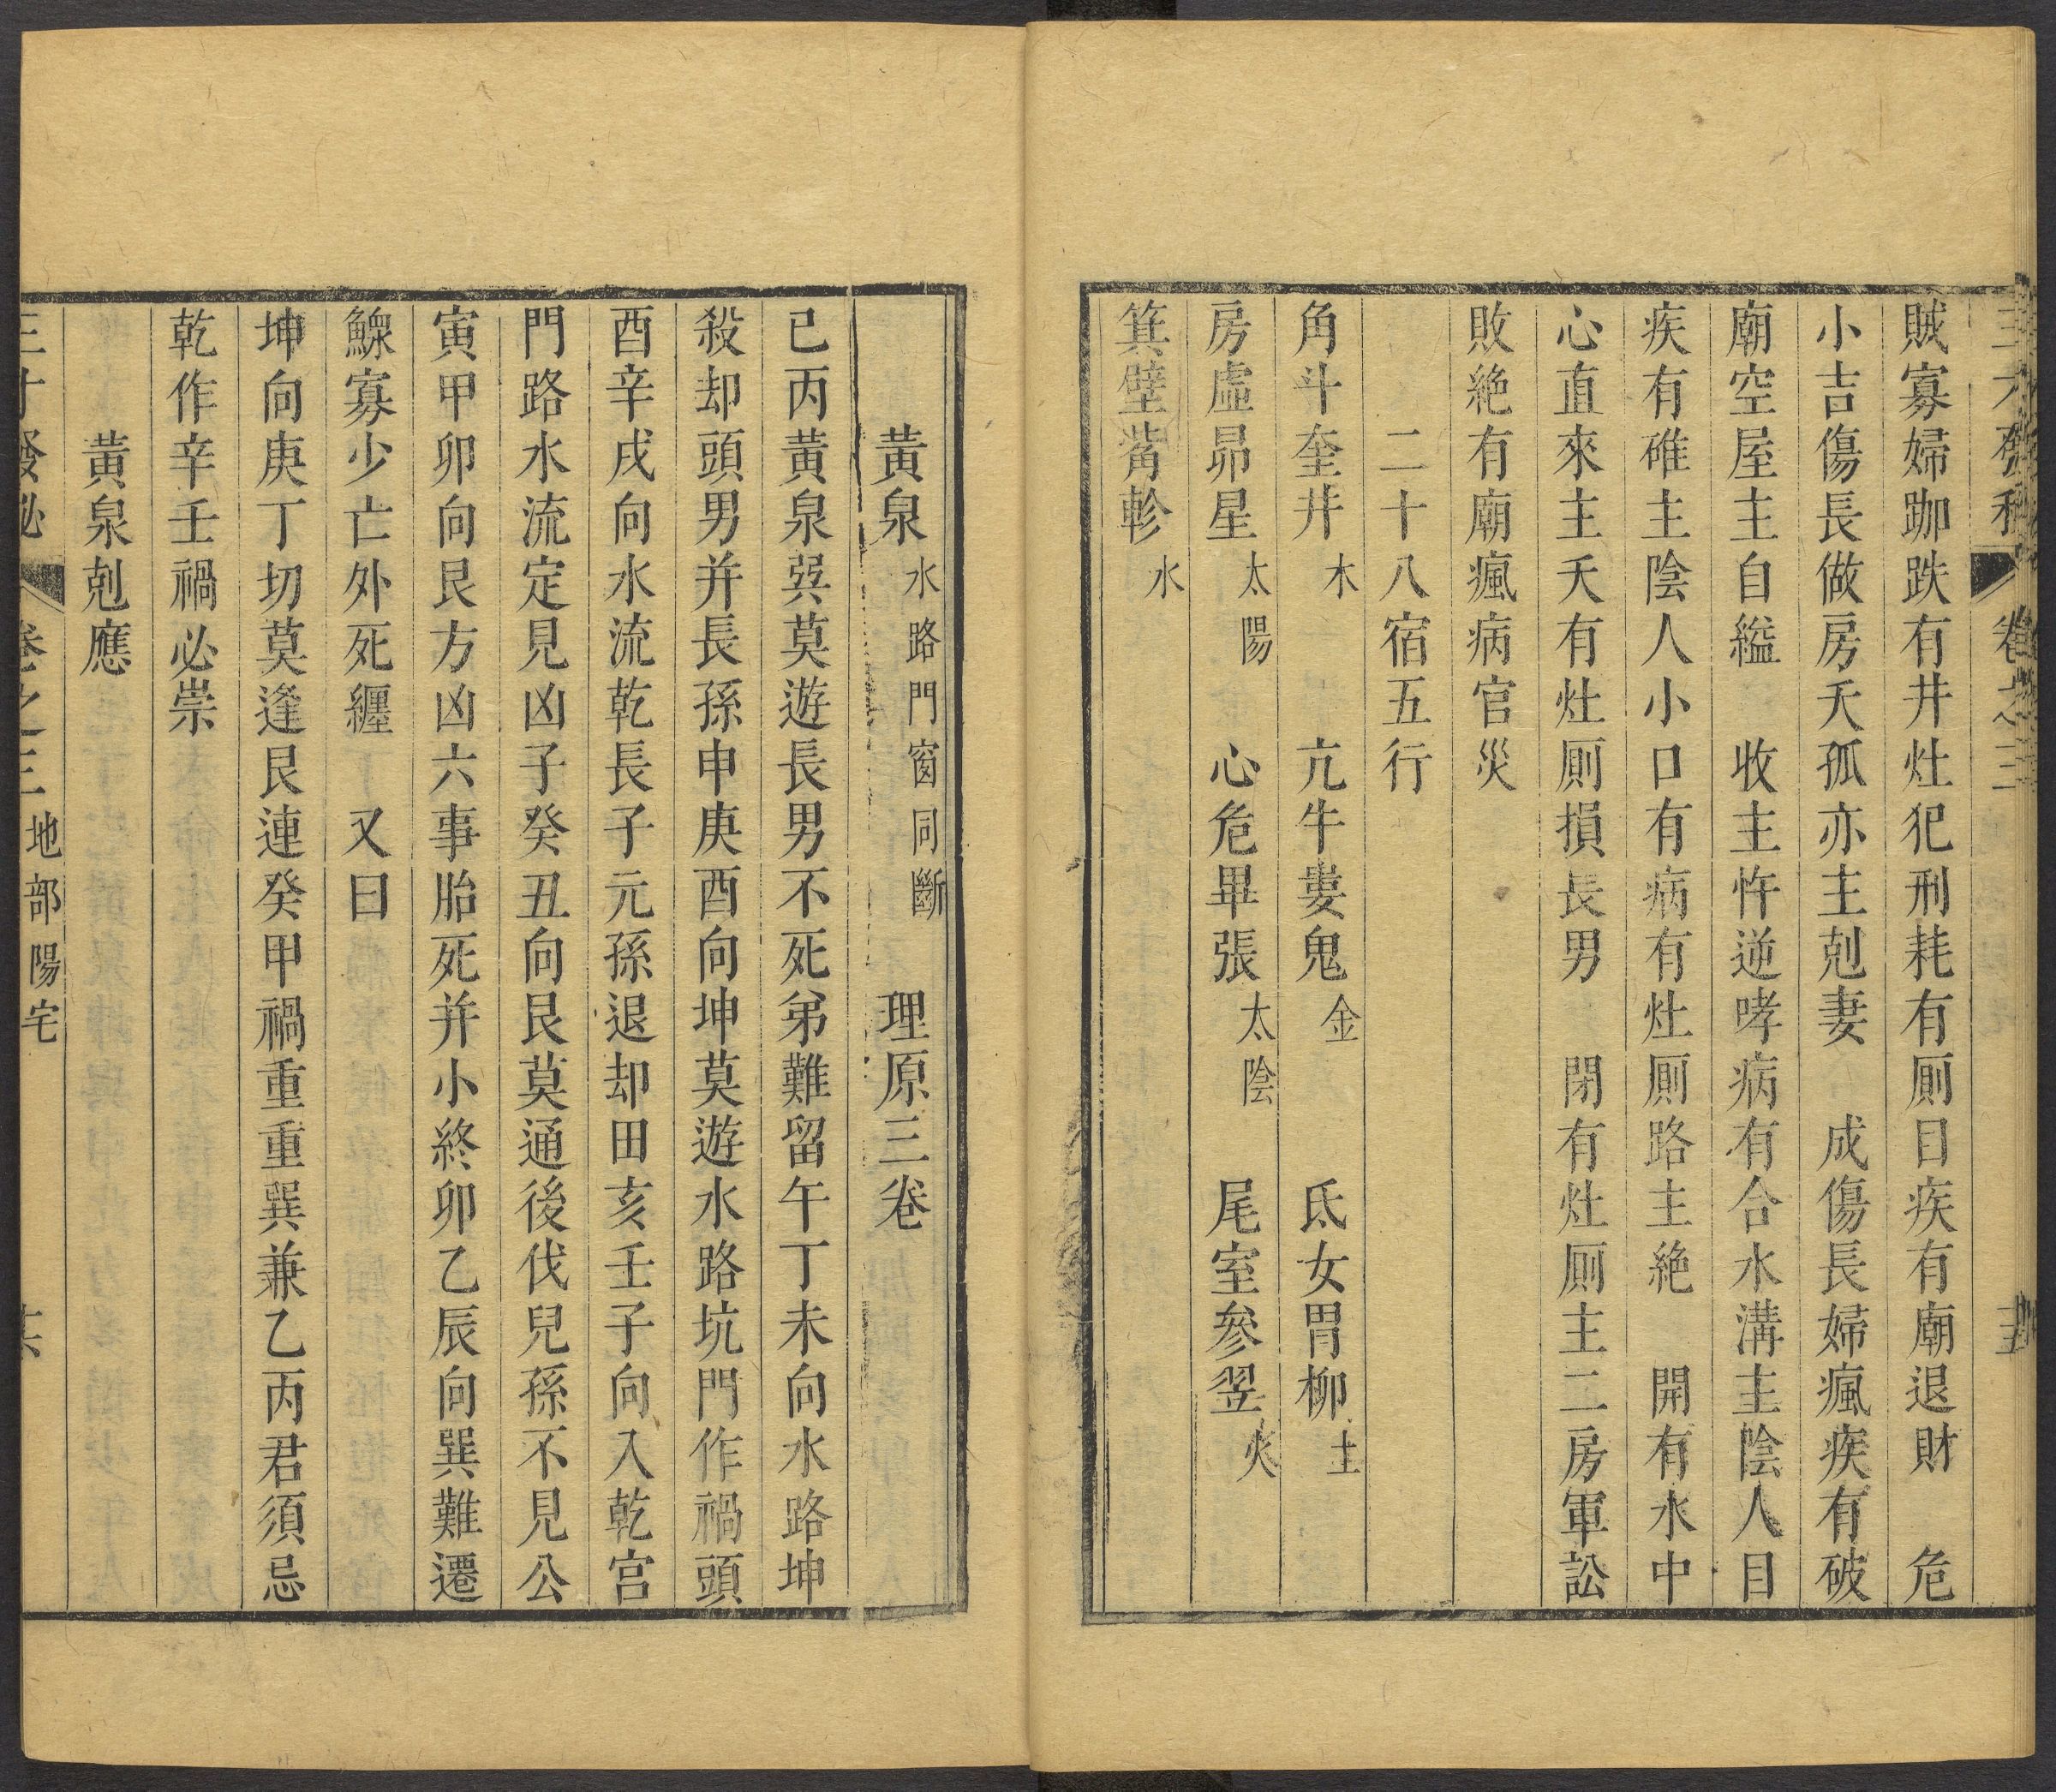 三才發秘 卷之三
賊寡婦跏跌有井灶犯刑耗有厠目疾有廟退財　危
小吉傷長做房夭孤亦主剋妻　成傷長婦瘋疾有破
廟空屋主自縊　收主忤逆哮病有合水溝主陰人目
疾有碓主陰人小口有病有灶厠路主絶　開有水中
心直來主夭有灶厠損長男　閉有灶厠主二房軍訟
敗絶有廟瘋病官災
二十八宿五行
角斗奎井木　亢牛婁鬼金　氐女胃柳土
房虛昴星太陽　心危畢張太陰　尾室參翌火
箕壁觜軫水
黃泉水路門窗同斷　理原三卷
巳丙黃泉巽莫遊長男不死弟難留午丁未向水路坤
殺却頭男并長孫申庚酉向坤莫遊水路坑門作禍頭
酉辛戌向水流乾長子元孫退却田亥壬子向入乾宮
門路水流定見凶子癸丑向艮莫通後伐兒孫不見公
寅甲卯向艮方凶六事胎死并小終卯乙辰向巽難遷
鰥寡少亡外死纏　又曰
坤向庚丁切莫逢艮連癸甲禍重重巽兼乙丙君須忌
乾作辛壬禍必祟
黃泉剋應
三才發秘 卷之三 地部陽宅